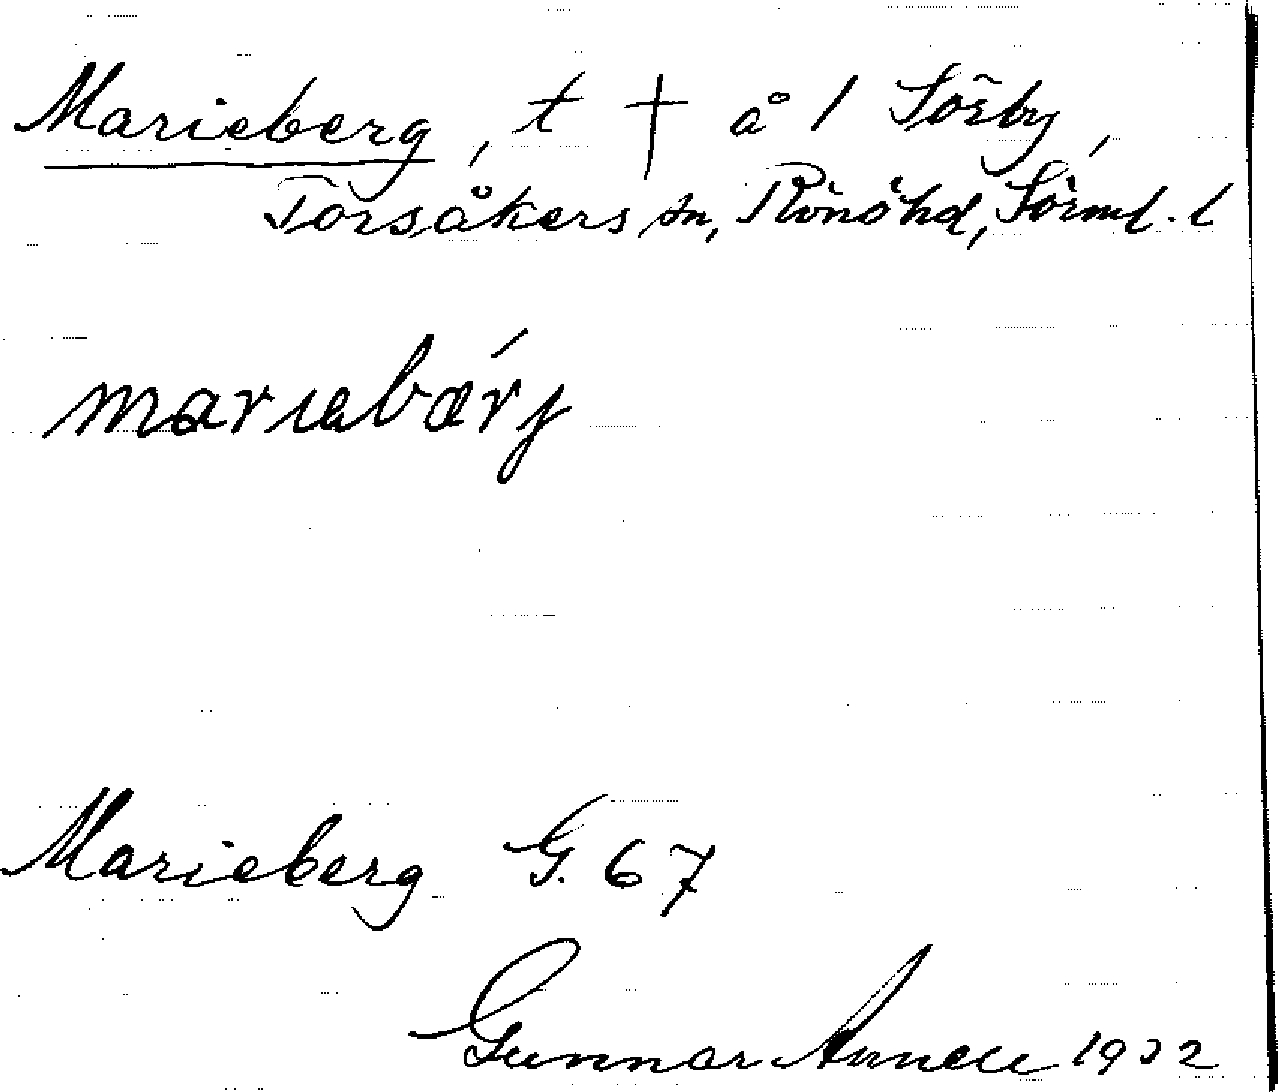 Marieberg, t † å 1 Sörby,
Torsåkers sn, Rönö hd, Sörml. l
marıebærj́
Marieberg G. 67
Gunnar Annell 1932